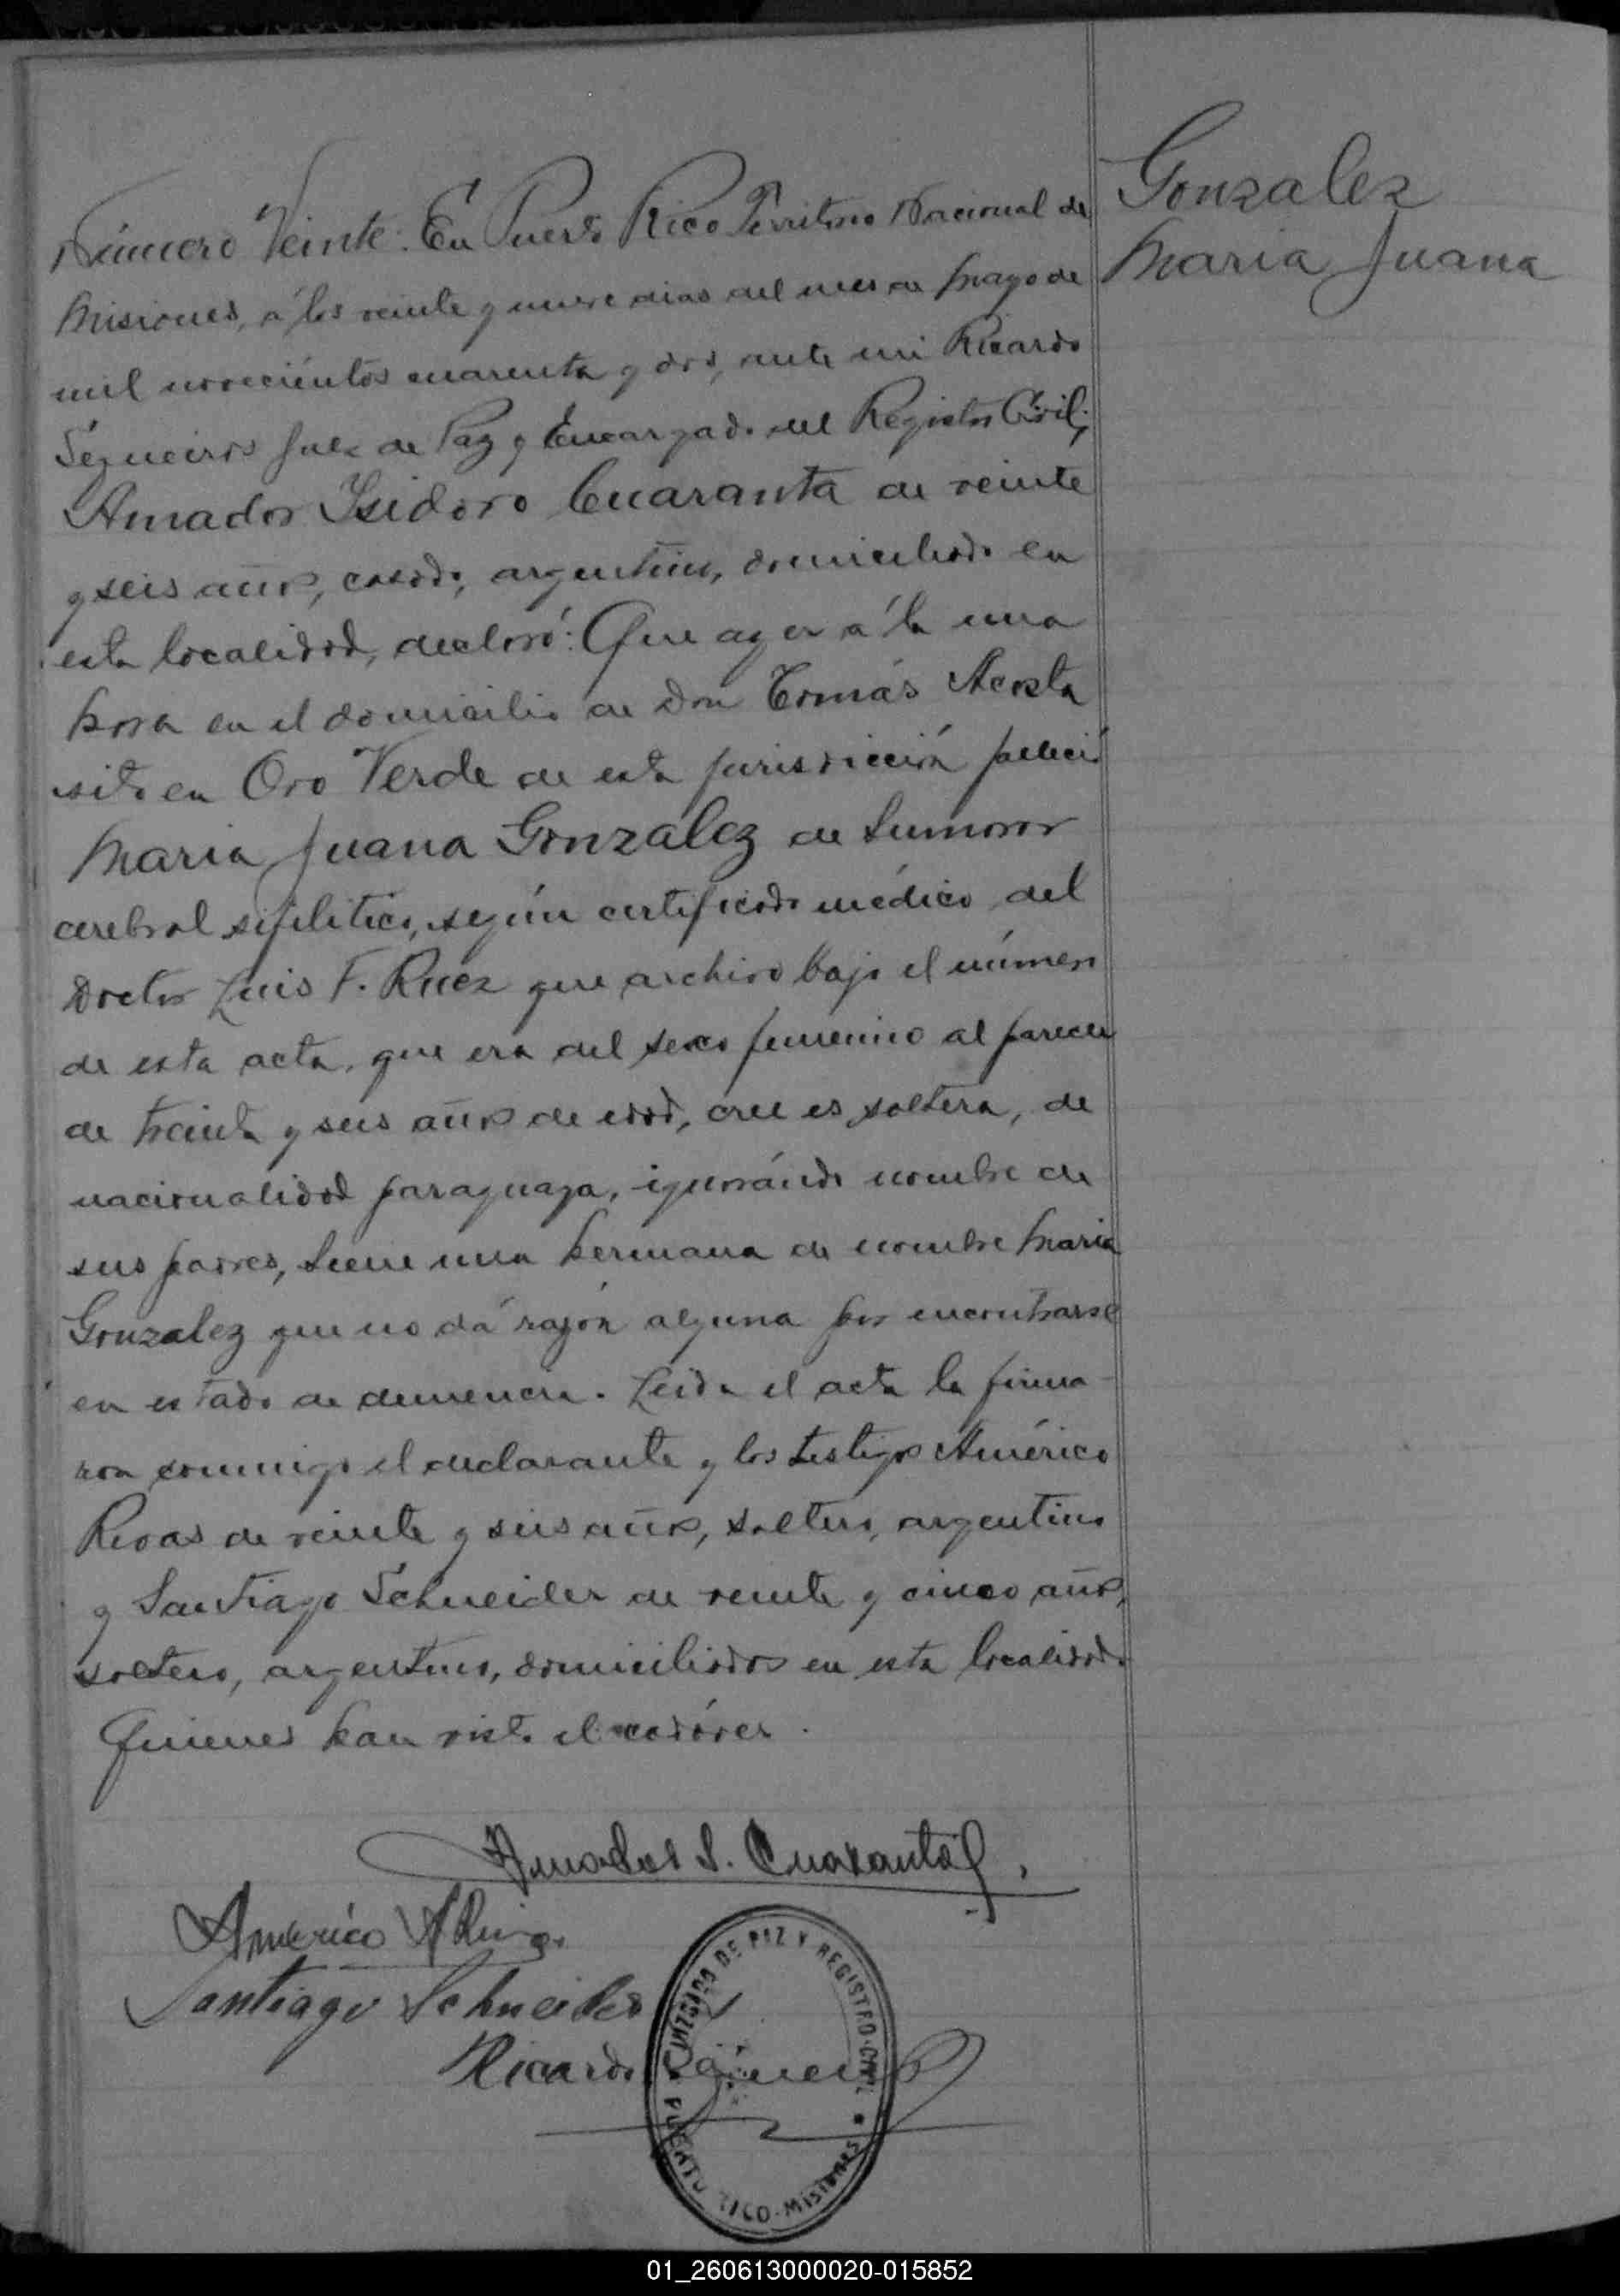 Gonzalez
Maria Juana
Número Veinte: En Puerto Rico Territorio Nacional de
Misiones, á los veinte y nueve dias del mes de Mayo de
mil novecientos cuarenta y dos, ante mi Ricardo
Segueiros Juez de Paz y Encargado del Registro Civil;
Amador Isidoro Cuaranta de veinte
y seis años, casado, argentino, domiciliado en
esta localidad, declaró: Que ayer á la una
hora en el domicilio de Don Tomás Acosta
sito en Oro Verde de esta jurisdicción falleció
Maria Juana Gonzalez de tumor
cerebral sifilitico, según certificado médico del
Doctor Luis F. Ruez que archivo bajo el número
de esta acta, que era del sexo femenino al parecer
de treinta y seis años de edad, cree es soltera, de
nacionalidad paraguaya, ignorándo nombre de
sus padres, tiene una hermana de nombre Maria
Gonzalez que no dá razón alguna por encontrarse
en estado de demencia. Leida el acta la firma-
ron conmigo el declarante y los testigos Américo
Rivas de veinte y seis años, soltero, argentino
y Santiago Schneider de veinte y cinco años,
soltero, argentino, domiciliados en esta localidad.
Quienes han visto el cadáver.
Amador I. Cuaranta
Américo A Rivas
Santiago Schneider
Ricardo Segueiros
JUZGADO DE PAZ Y REGISTRO CIVIL
PUERTO RICO-MISIONES
01_260613000020-015852